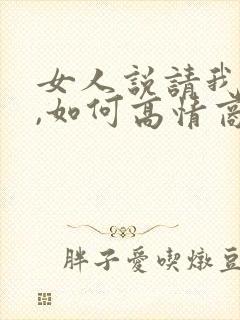 女人説請我
,如何高情商
胖子愛喫燉豆